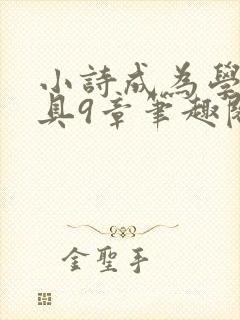 小詩成為學
具9章筆趣閣
金聖手